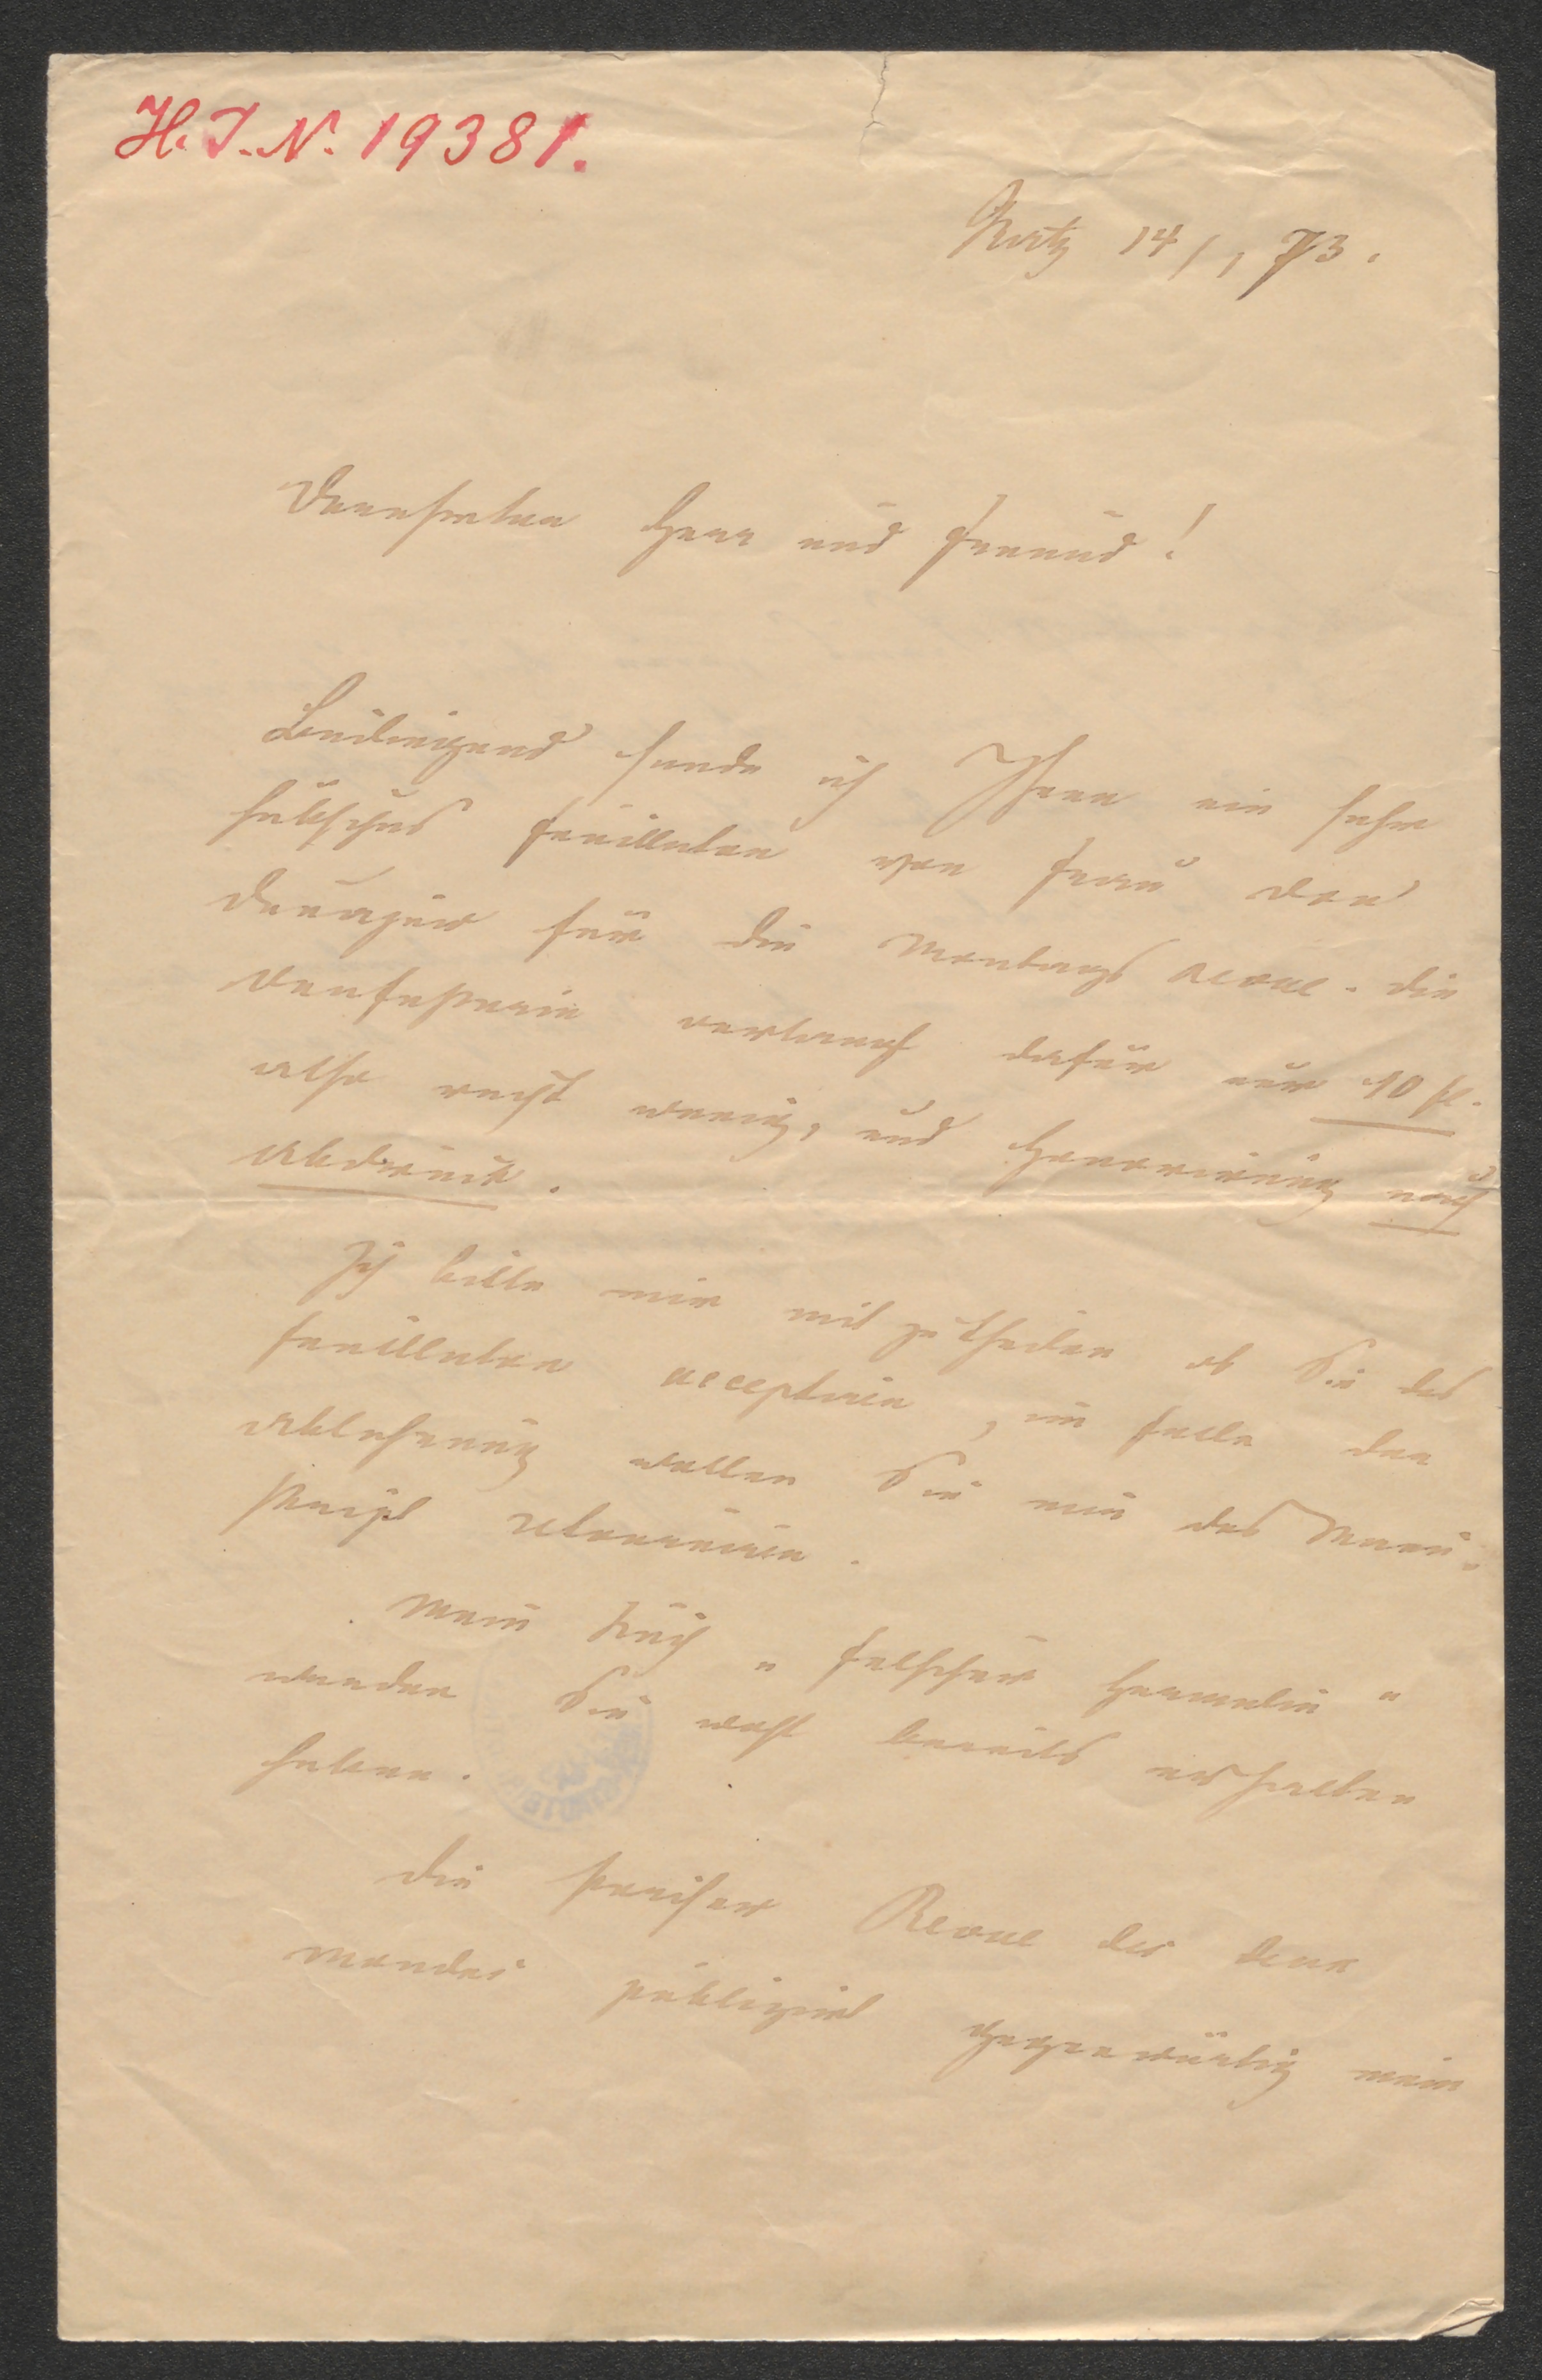 H. I. N. 19381.
Gratz 14/1 73.
Verehrter Herr und Freund!
Beiliegend sende ich Ihnen ein sehr
hübsches Feuilleton von Frau von
für die Montags Revue. Die
Verfasserin verlangt dafür nur 10 fl.
also recht wenig, und Honorirung nach
Abdruck.
Ich bitte mir mit zu theilen ob Sie das
Feuilleton acceptiren, im Falle der
Ablehnung wollen Sie mir das Manu-
skript retourniren.
Mein Buch „Falscher Hermelin"
werden Sie wohl bereits erhalten
haben.
Die Pariser Revue des deux
mondes publizirt gegenwärtig mein